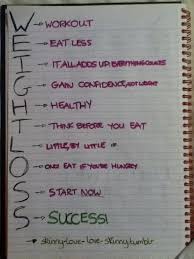 W → WORKOUT
E → EAT LESS
I → IT ALL ADDS UP! EVERYTHING COUNTS
G → GAIN CONFIDENCE, NOT WEIGHT
H → HEALTHY
T → THINK BEFORE YOU EAT
L → LITTLE, BY LITTLE
O → ONLY EAT IF YOU'RE HUNGRY
S → START NOW
S → SUCCESS!
→ skinny-love-love-skinny.tumblr